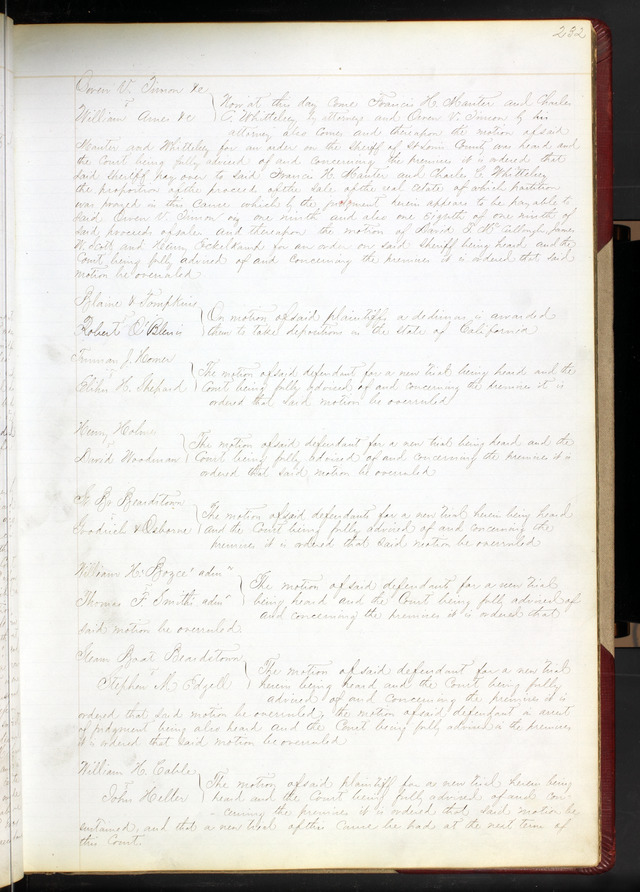 232
Owen V. Timon &c
vs
William Anne &c } Now at this day come Francis H. Manter and Charles
G. Whittelsey by attorneys and Owen V. Timon by his
attorney also comes and thereupon the motion of said
Manter and Whittelsey for an order on the Sheriff of St Louis County was heard and
the Court being fully advised of and concerning the premises it is ordered that
said Sheriff pay over to said Francis H. Manter and Charles G. Whittelsey
the proportion of the proceeds of the sale of the real estate of which partition
was prayed in this cause which by the judgment herein appears to be payable to
said Owen V. Timon viz one ninth and also one Eighth of one ninth of
said proceeds of sale and thereupon the motion of David T. McCullough James
W. Scott and Henry for an order on said Sheriff being heard and the
Court being fully advised of and concerning the premises it is ordered that said
motion be overruled
Blaine & Tompkins
vs
Robert C. Blewis } On motion of said plaintiffs a dedimus is awarded
them to take depositions in the State of California
Truman J. Homer
vs
Elihu H. Shepard } The motion of said defendant for a new trial being heard and the
Court being fully advised of and concerning the premises it is
ordered that said motion be overruled
Henry Holmes
vs
David Woodman } The motion of said defendant for a new trial being heard and the
Court being fully advised of and concerning the premises it is
ordered that said motion be overruled
St. Bt. Beardstown
vs
Goodrich & Osborne } The motion of said defendants for a new trial herein being heard
and the Court being fully advised of and concerning the
premises it is ordered that said motion be overruled
William H. Boyce' adm"
vs
Thomas F. Smiths adm" } The motion of said defendant for a new trial
being heard and the Court being fully advised of
and concerning the premises it is ordered that
said motion be overruled.
Steam Boat Beardstown
vs
Stephen M. Edgell } The motion of said defendant for a new trial
herein being heard and the Court being fully
advised of and concerning the premises it is
ordered that said motion be overruled, the motion of said defendant in arrest
of judgment being also heard and the Court being fully advised in the premises
it is ordered that said motion be overruled
William H. Cable
vs
John Heller } The motion of said plaintiff for a new trial herein being
heard and the Court being fully advised of and con-
-cerning the premises it is ordered that said motion be
sustained and that a new trial of this cause be had at the next term of
this Court.